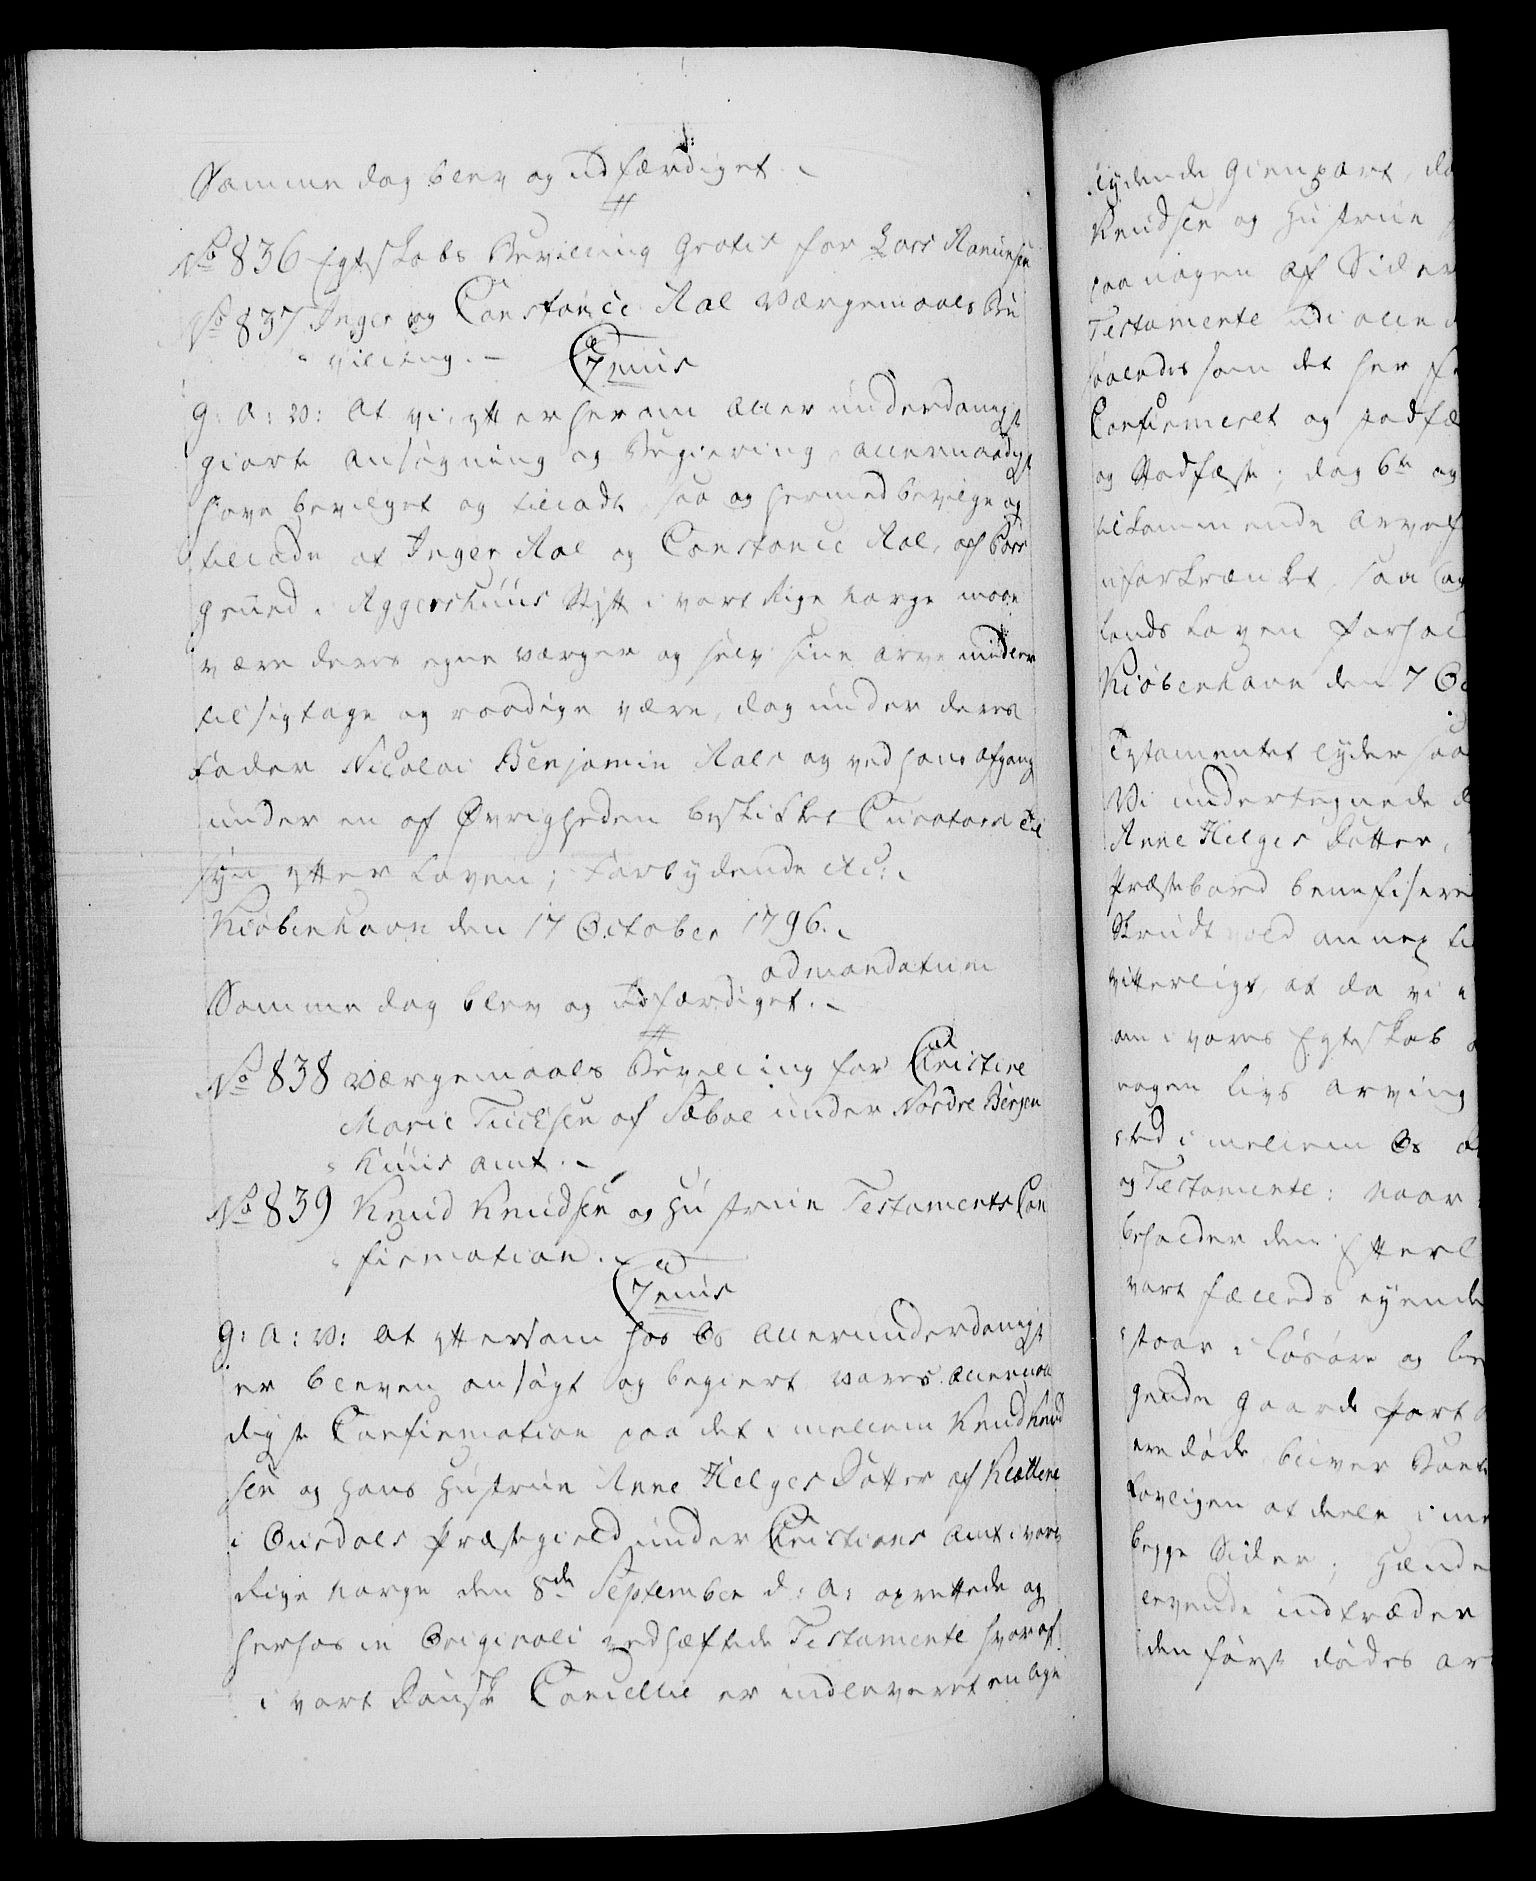 Samme dag blev og udfærdiget.
No 836 Egteskabs Bevilling Gratis for Lars Amunsen
No 837 Inger og Constance Aal Værgemaals Be
villing.
Genus
G: A: V: At vi, efter herom allerunderdanigst
giorte Ansøgning og Begiering, allernaadigst
have bevilget og tilladt, saa og hermed bevilge og
tillade at Inger Aal og Constance Aal, af Pors
grund i Aggershuus Stift i vort Rige Norge maae
være deres egne Værger og selv sine Arve midler
til sig tage og raadige være, dog under deres
Fader Nicolai Benjamin Aals og ved hans Afgang
under en af Øvrigheden beskikket Curators Til
syn efter Loven; Forbydende etc:
Kiøbenhavn den 17 October 1796.
ad mandatum
Samme dag blev og udfærdiget.
No 838 Værgemaals Bevilling for Christine
Marie Tuchsen af Sæboe under Nordre Bergen
huus Amt.
No 839 Knud Knudsen og Hustrue Testaments Con
firmation.
Genus
G: A: V: At eftersom hos Os allerunderdanigst
er bleven ansøgt og begiert vores allernaa
digste Confirmation paa det imellem Knud Knud
sen og hans Hustrue Anne Helges Datter af Klættene
i Ousdals Præstegield under Christians Amt i vort
Rige Norge den 8de September d: A: oprettede og
herhos in Originali vedhæftede Testamente hvoraf
i vort Danske Cancellie er indleveret en lige
lydende Gienpart, da
Knudsen og Hustrue
paa nogen af Sider
Testamente udi alle
saaledes som det her
Confirmeret og stadfæ
og Stadfæste; dog 6te og
tilkommende Arvef
uforkrænket. Saa og
Lands Loven forhol
Kiøbenhavn den 7 Oc
Testamentet lyder saa
Vi undertegnede
Anne Helges Datter,
Præstebord beneficere
Skrudtvold annex ti
vitterligt, at da vi
om i vores Egteskab
nogen Livs Arving
sted imellem Os
og Testamente: naar
beholder den Efterl
vort fælleds eyende
staar i Løsøre og lig
gende Gaarde part
ere døde, bliver Boet
Lovligen at deele ime
begge Sider; Hænde
levende indtræder
den først dødes ar